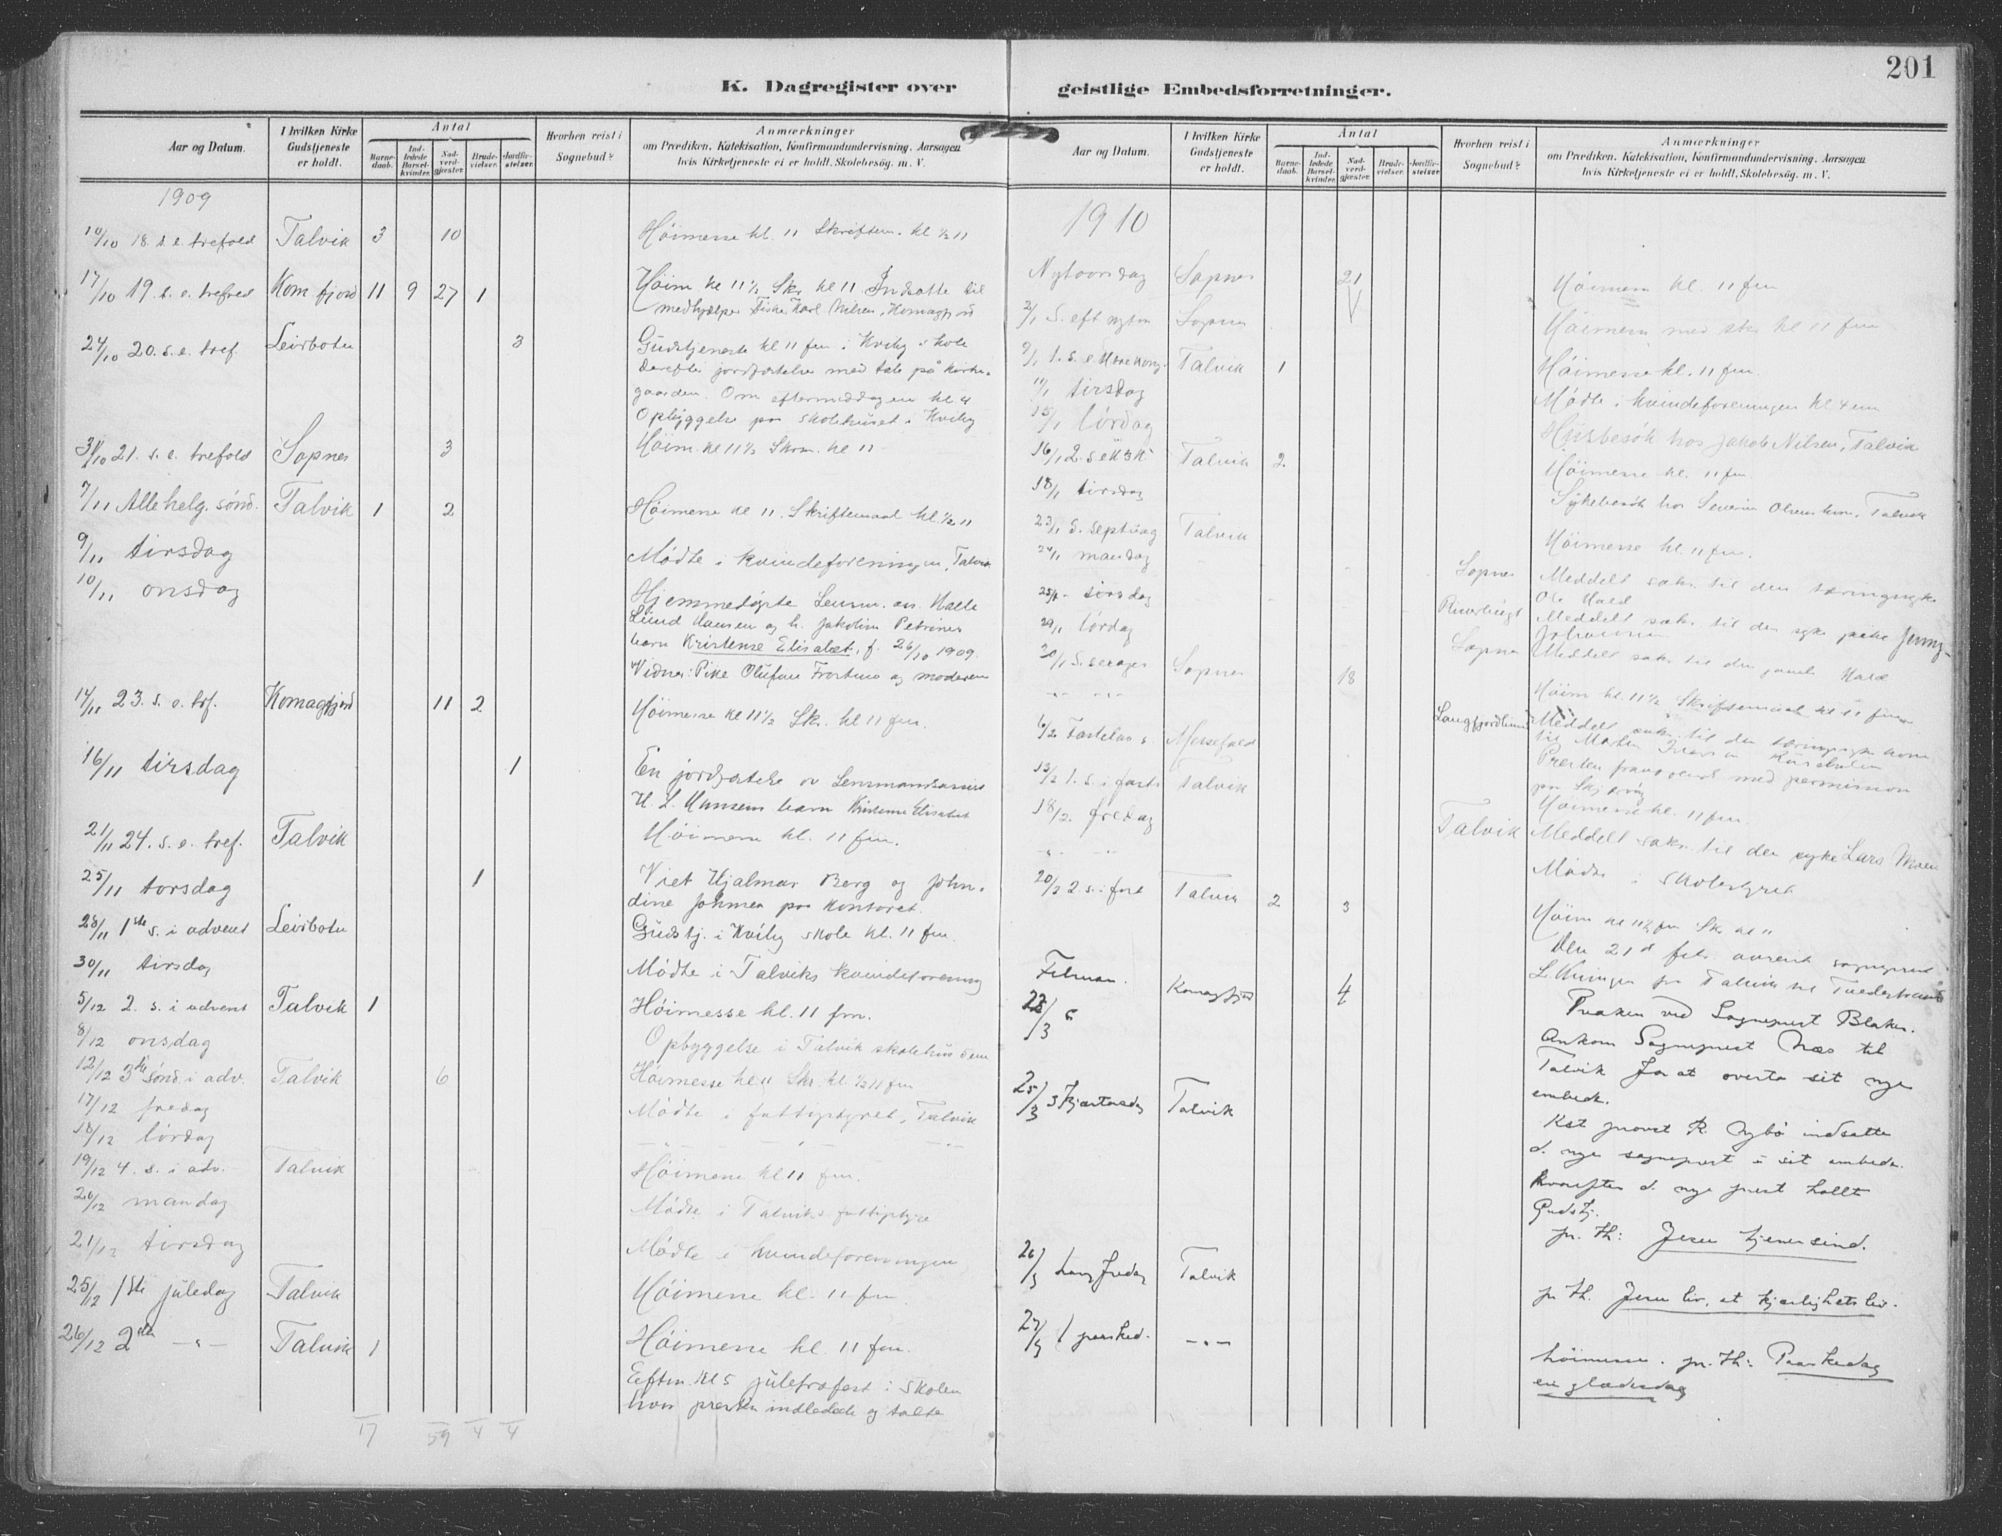 201
K. Dagregister over geistlige Embedsforretninger.
Aar og Datum. I hvilken Kirke Gudstjeneste er holdt. Antal Barnedaab. Indledede Barselkvinder. Nadverdgjæster. Brudevielser. Jordfæstelser. Hvorhen reist i Sognebud? Anmærkninger om Prædiken, Katekisation, Konfirmandundervisning, Aarsagen hvis Kirketjeneste ei er holdt, Skolebesøg. m. V.
1909
10/10 18. s. e. trefold Talvik 3 10 Høimesse kl. 11 Skriftem. kl ½ 11
17/10 19. s. e. trefold Komfjord 11 9 27 1 Høim kl 11½ Skr. kl 11 Indsatte til
medhjælper Karl Nilsen, Komagfj
24/10 20. s. e. tref. Leirbotn 3 Gudstjeneste kl 11 fm i Kviby skole
derefter jordfæstelse med tale på kirke-
gaarden. Om eftermiddagen kl 4
Opbyggelse paa skolehuset i Kviby
31/10 21. s. e. trefold Sopnes 3 Høim kl 11½ Skrm. kl 11
7/11 Allehelg. sønd. Talvik 1 2 Høimesse kl 11. Skriftemaal kl. ½ 11
9/11 tirsdag Mødte i kvindeforeningen, Talvik
10/11 onsdag Hjemmedøpte Lensm. ass. Halle
Lund Hansen og h. Jakoline Petrines
barn Kristense Elisabet, f. 26/10 1909.
Vidner: Pike Olufine og moderen
14/11 23. s. e. tref. Komagfjord 11 2 Høimesse kl 11½ Skr. kl. 11 fm.
16/11 tirsdag 1 En jordfæstelse av Lensmandsassist
H. L. Hansens barn Kristense Elisabet
21/11 24. s. e. tref. Talvik Høimesse kl. 11 fm.
25/11 torsdag 1 Viet Hjalmar Berg og John-
dine Johnsen paa kontoret.
28/11 1ste s. i advent Leirbotn Gudstj. i Kviby skole kl. 11 fm.
30/11 tirsdag Mødte i Talviks kvindeforening
5/12 2. s. i advent Talvik 1 Høimesse kl. 11 fm.
8/12 onsdag Opbyggelse i Talvik skolehus 5 em
12/12 3die sønd. i adv. Talvik 6 Høimesse kl 11 Skr. kl. ½ 11 fm
17/12 fredag Mødte i fattigstyret, Talvik
18/12 lørdag — " — — " — — " —
19/12 4. s. i adv. Talvik Høimesse kl 11 fm.
20/12 mandag Mødte i Talviks fattigstyre
21/12 tirsdag Mødte i kvindeforeningen
25/12 1ste juledag Talvik Høimesse kl. 11 fm.
26/12 2den — " — Talvik 1 Høimesse kl. 11 fm.
Eftm. kl 5 juletræfest i skolen
hvor presten indledede og talte
17 59 4 4
Aar og Datum. I hvilken Kirke Gudstjeneste er holdt. Antal Barnedaab. Indledede Barselkvinder. Nadverdgjæster. Brudevielser. Jordfæstelser. Hvorhen reist i Sognebud? Anmærkninger om Prædiken, Katekisation, Konfirmandundervisning, Aarsagen hvis Kirketjeneste ei er holdt, Skolebesøg. m. V.
1910
Nytaarsdag Sopnes 21 Høimesse kl. 11 fm
2/1 S. eft nytaar Sopnes Høimesse med skr kl 11 fm
9/1 1. s. e H3kong. Talvik 1 Høimesse kl. 11 fm.
11/1 tirsdag Mødte i kvindeforeningen kl 4 em
15/1 lørdag Husbesøk hos Jakob Nilsen, Talvik
16/1 2. s e H3K Talvik 2 Høimesse kl. 11 fm
18/1 tirsdag Sykebesøk hos Severin Olsen, Talvik
23/1 S. septuag Talvik Høimesse kl. 11 fm.
24/1 mandag Sopnes Meddelt sakr. til den tæringssyke
Ole Hald
25/1 tirsdag Meddelt sakr. til den syke pike Jenny
Johannesen
29/1 lørdag Sopnes Meddelt sakr. til den gamle Hald
30/1 S. sexages Sopnes 18 Høim kl. 11½ Skriftemaal kl 11 fm
— " — Langfjordbunn Meddelt sakr. til den tæringssyke
til Morten
6/2 Fastelavns s. Mersefald Presten fraværende med permission
paa Skjervøy
13/2 1. s. i faste Talvik Høimesse kl. 11 fm.
18/2 fredag Talvik Meddelt sakr. til den syke Lars Moen
— " — Mødte i skolestyret
20/2 2 s. i fast Talvik 2 3 Høim kl 11½ fm Skr. kl 11
Den 21de febr. avreiste sogneprest
L. fra Talvik til Tvedestrand
Februar. 27 Komagfjord 4 Præken ved Sogneprest Blakar.
Ankom Sogneprest Næs til
Talvik for at overta sit nye
embede.
25/3 Skjærtorsdag Talvik Kst provst R. Nybø indsatte
d. nye sogneprest i sit embede.
hvorefter d. nye prest holdt
Gudstj.
pr. Th: Jesu tjenersind.
26/3 Langfredag Talvik pr Th. Jesu liv, et kjærlighets liv.
27/3 1 paasked. — " — Høimesse. pr. Th: Paaskedag
en glædesdag